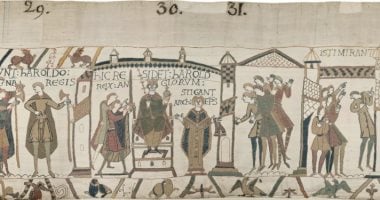 29.
30.
31.
UNT:hAROLDO:
NA REGIS
hIC RE SIDET:hAROLD
REX:AN GLORVM:
STIGANT
ARChIEPS
ISTI MIRANT